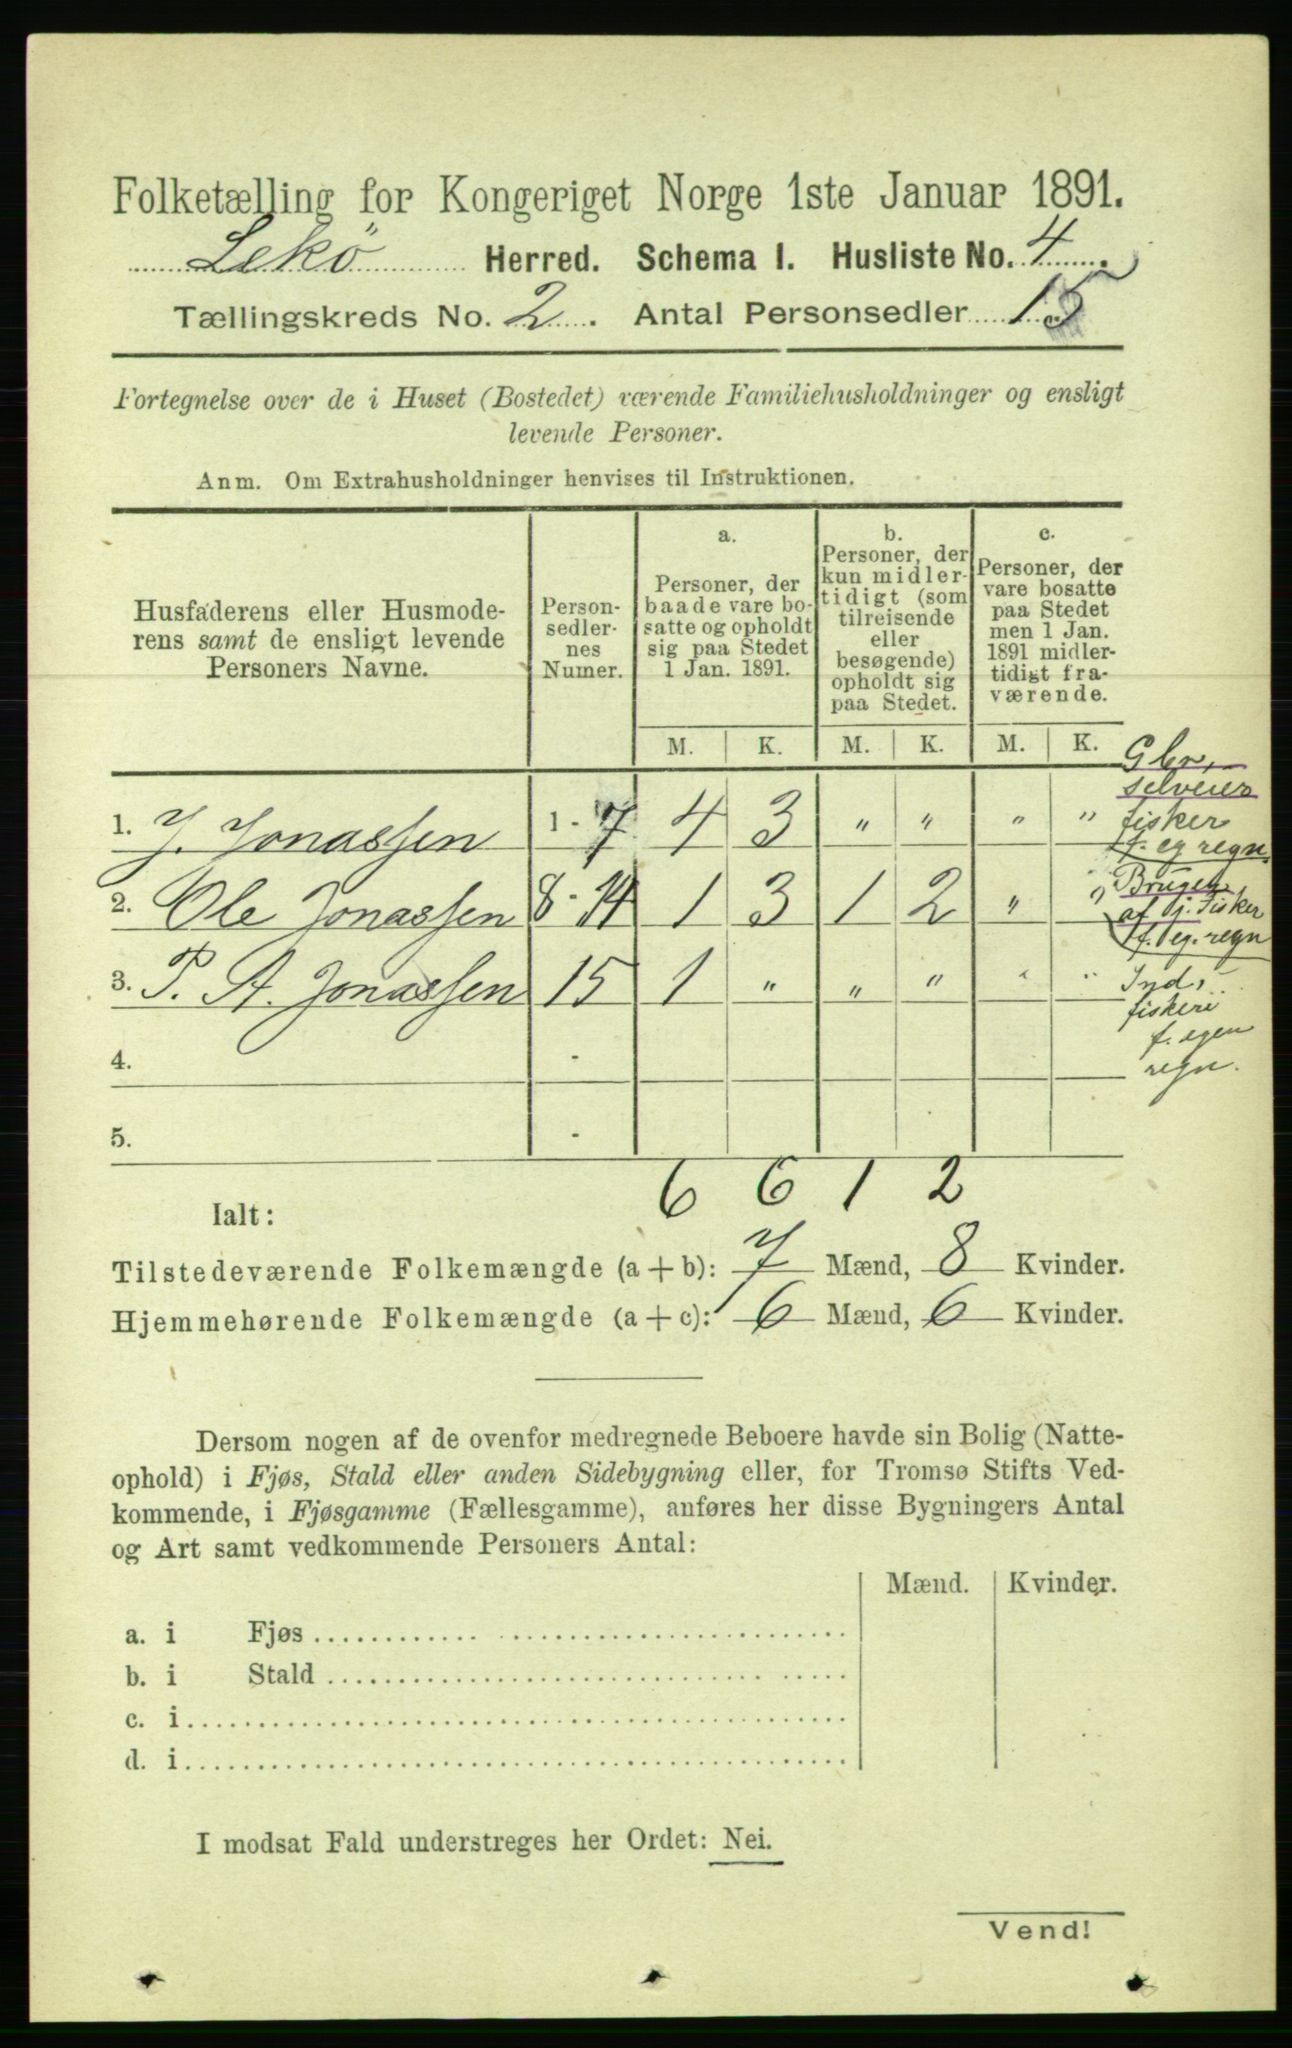 Folketælling for Kongeriget Norge 1ste Januar 1891.
Lekö Herred. Schema I. Husliste No. 4.
Tællingskreds No. 2. Antal Personsedler 15
Fortegnelse over de i Huset (Bostedet) værende Familiehusholdninger og ensligt
levende Personer.
Anm. Om Extrahusholdninger henvises til Instruktionen.
Husfaderens eller Husmode-
rens samt de ensligt levende
Personers Navne.
Person-
sedler-
nes
Numer.
a.
Personer, der
baade vare bo-
satte og opholdt
sig paa Stedet
1 Jan. 1891.
b.
Personer, der
kun midler-
tidigt (som
tilreisende
eller
besøgende)
opholdt sig
paa Stedet.
c.
Personer, der
vare bosatte
paa Stedet
men 1 Jan.
1891 midler-
tidigt fra-
værende.
M. K. M. K. M. K.
1. J. Jonassen 1 - 7 4 3 " " " "
Gbr,
selveier
fisker
f. eg regn.
2. Ole Jonassen 8 - 14 1 3 1 2 " "
Bruger
af j. Fisker
f. eg. regn
3. P. A. Jonassen 15 1 " " " " "
Ind,
fiskeri
f. egen
regn.
4. -
5. -
Ialt: 6 6 1 2
Tilstedeværende Folkemængde (a + b): 7 Mænd, 8 Kvinder.
Hjemmehørende Folkemængde (a + c): 6 Mænd, 6 Kvinder.
Dersom nogen af de ovenfor medregnede Beboere havde sin Bolig (Natte-
ophold) i Fjøs, Stald eller anden Sidebygning eller, for Tromsø Stifts Ved-
kommende, i Fjøsgamme (Fællesgamme), anføres her disse Bygningers Antal
og Art samt vedkommende Personers Antal:
Mænd. Kvinder.
a. i Fjøs
b. i Stald
c. i
d. i
I modsat Fald understreges her Ordet: Nei.
Vend!